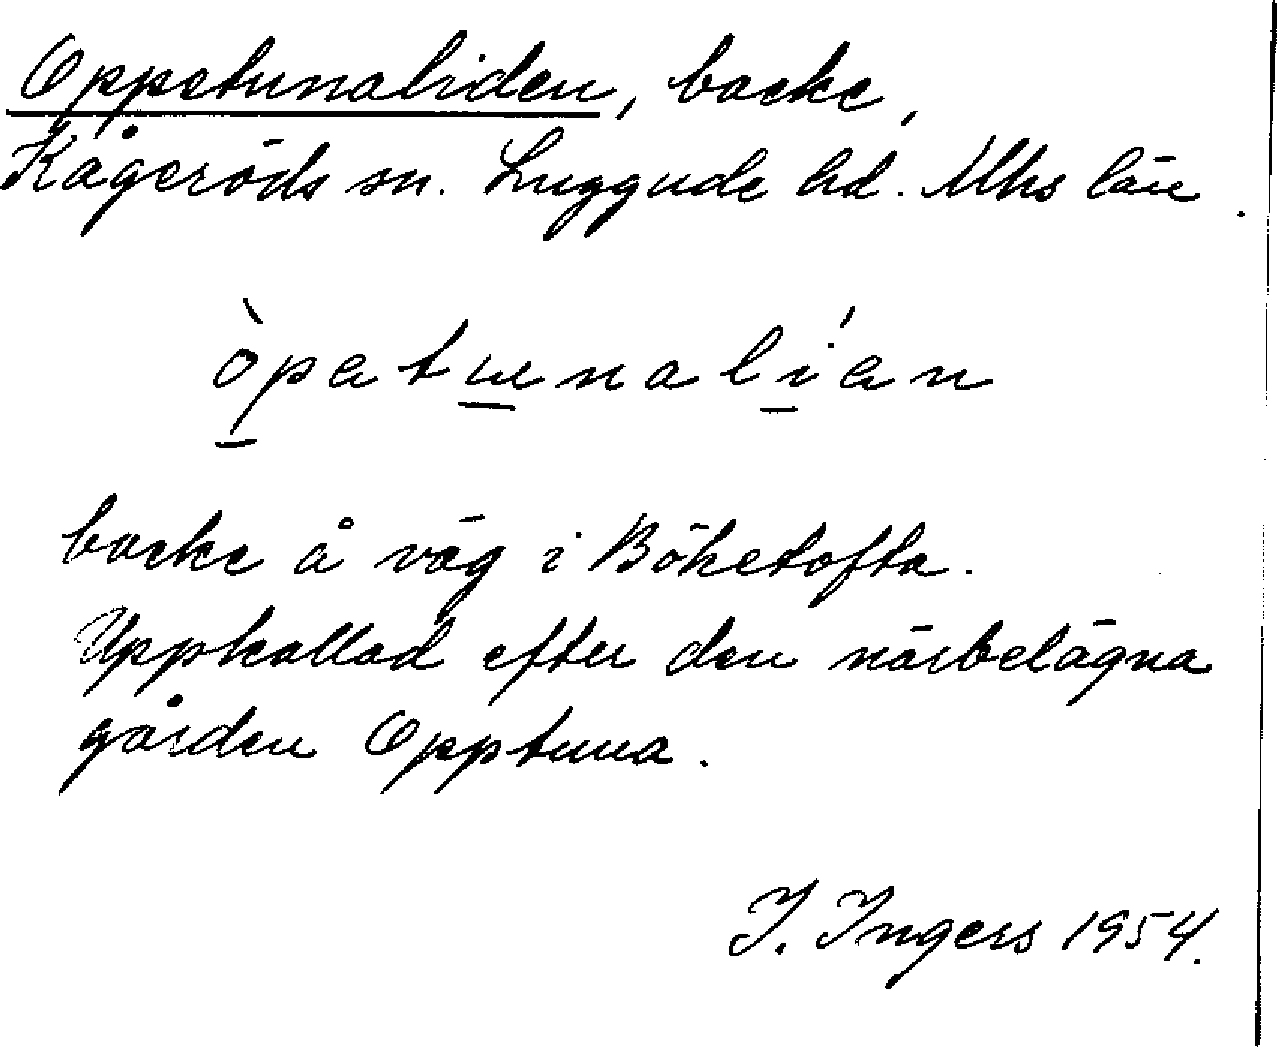 Oppetunaliden, backe,
Kågeröds sn. Luggude hd. Mhs län.
òpatunalían
backe å väg i Böketofta.
Uppkallad efter den närbelägna
gården Opptuna.
I. Ingers 1954.